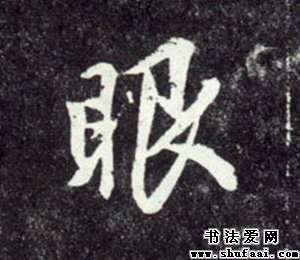 眼
书法爱网
www.shufaai.com